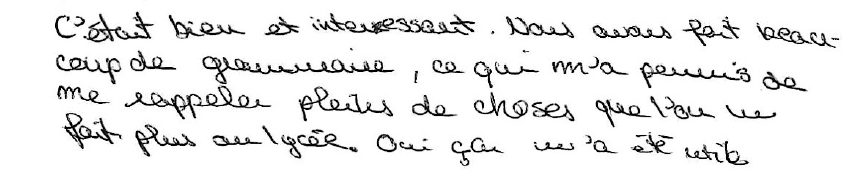 C'était bien et interressant. Nous avons fait beau-
coup de grammaire, ce qui m'a permis de
me rappeler pleins de choses que l'on ne
fait plus au lycée. Oui ça m'a été utile